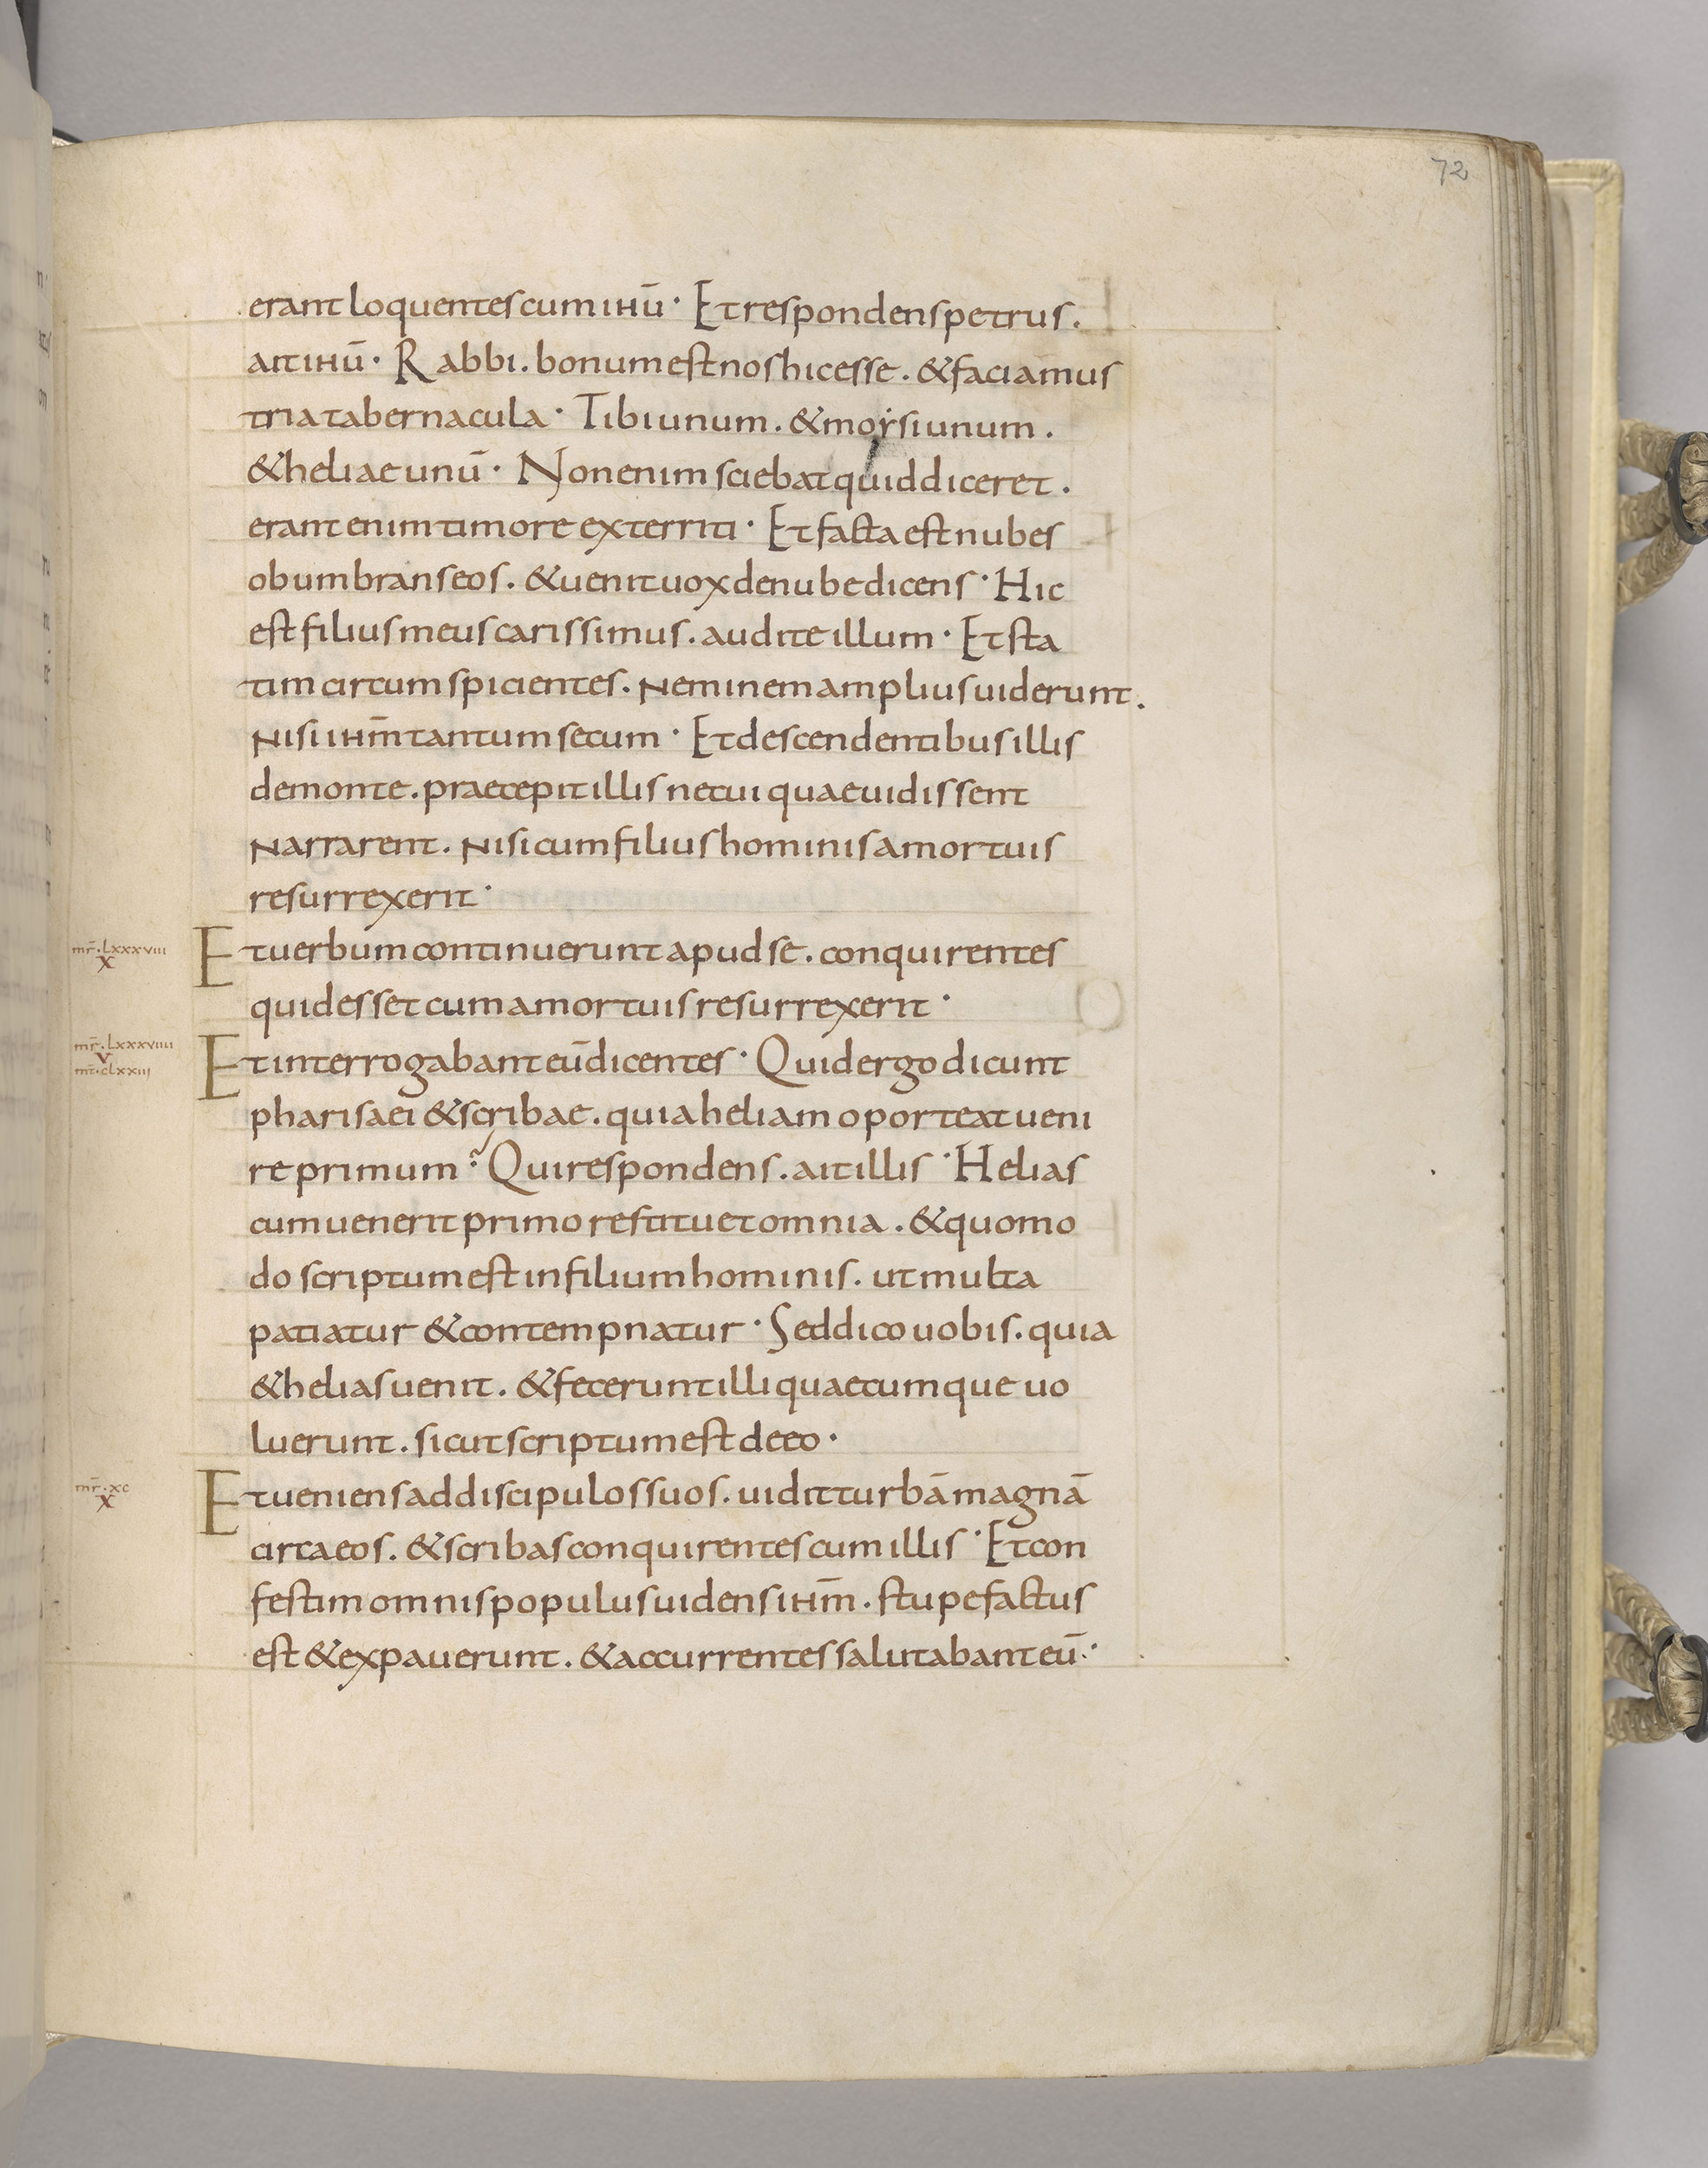 72
erant loquentes cum ihū· Et respondens petrus.
ait ihū· Rabbi. bonum est nos hic esse. & faciamus
tria tabernacula· Tibi unum. & moysi unum.
& heliae unū· Non enim sciebat quid diceret.
erant enim timore exterriti· Et facta est nubes
obumbrans eos. & uenit uox de nube dicens· Hic
est filius meus carissimus. audite illum· Et sta
tim circumspicientes. neminem amplius uiderunt.
nisi ihm̄ tantum secum· Et descendentibus illis
de monte. praecepit illis ne cui quae uidissent
narrarent. nisi cum filius hominis a mortuis
resurrexerit·
mr̄·lxxxviii
x
Et uerbum continuerunt apud se. conquirentes
quid esset cum a mortuis resurrexerit·
mr̄·lxxxviiii
v
mt̄·clxxiii
Et interrogabant eū dicentes· Quid ergo dicunt
pharisaei & scribae. quia heliam oporteat ueni
re primum? Qui respondens. ait illis· Helias
cum uenerit primo restituet omnia. & quomo
do scriptum est in filium hominis. ut multa
patiatur & contempnatur· Sed dico uobis. quia
& helias uenit. & fecerunt illi quaecumque uo
luerunt. sicut scriptum est de eo·
mr̄·xc
x
Et ueniens ad discipulos suos. uidit turbā magnā
circa eos. & scribas conquirentes cum illis· Et con
festim omnis populus uidens ihm̄. stupefactus
est & expauerunt. & accurrentes salutabant eū·